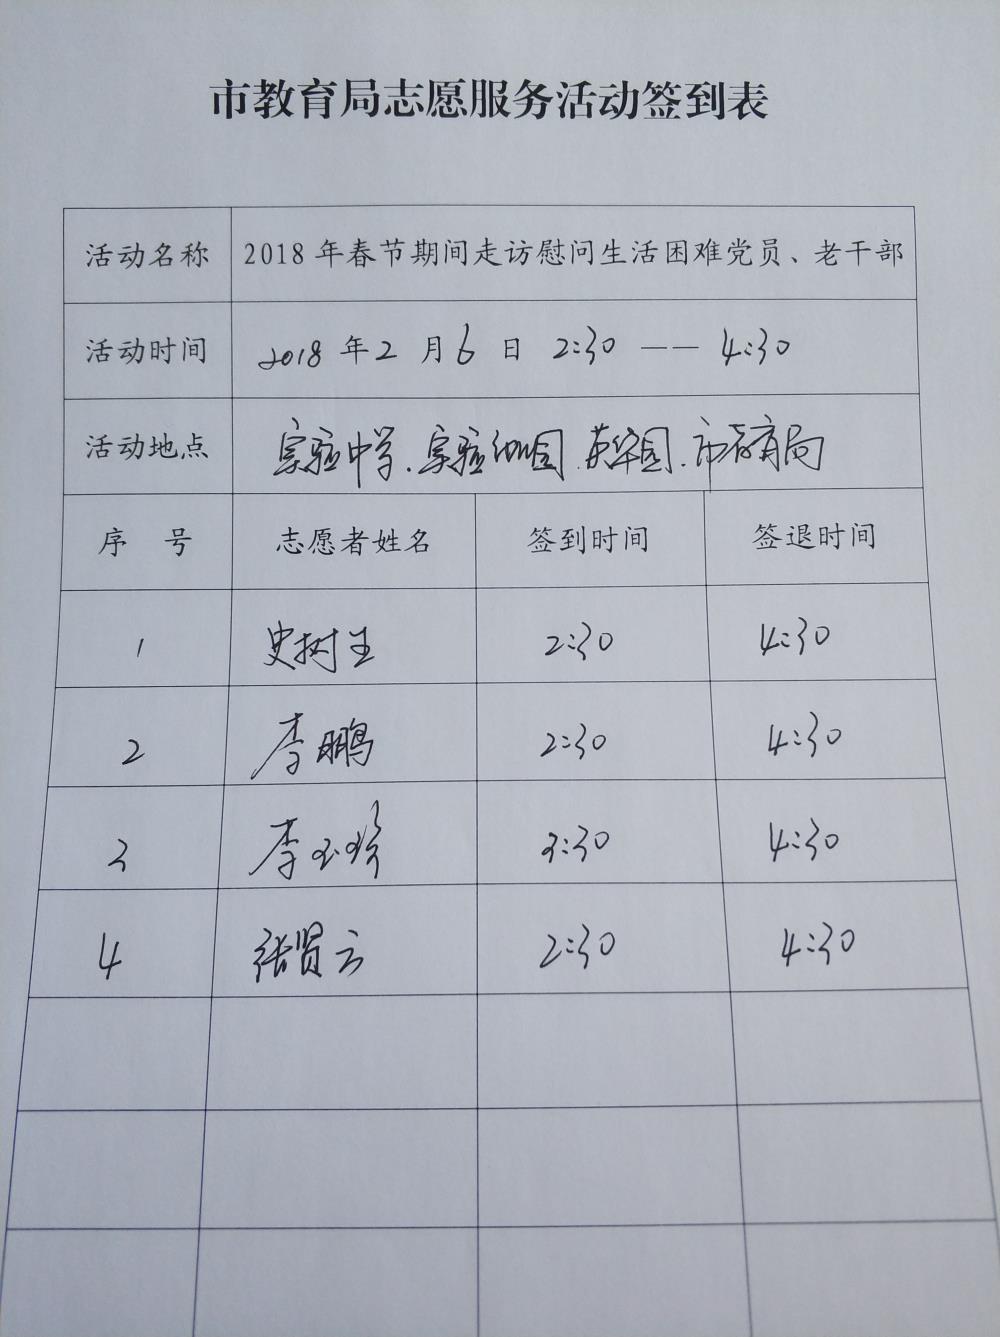 市教育局志愿服务活动签到表
活动名称 2018年春节期间走访慰问生活困难党员、老干部
活动时间 2018年2月6日 2:30——4:30
活动地点 实验中学、实验幼儿园、英华园、市教育局
序 号 志愿者姓名 签到时间 签退时间
1 史树生 2:30 4:30
2 李鹏 2:30 4:30
3 李玉珍 2:30 4:30
4 张贤云 2:30 4:30